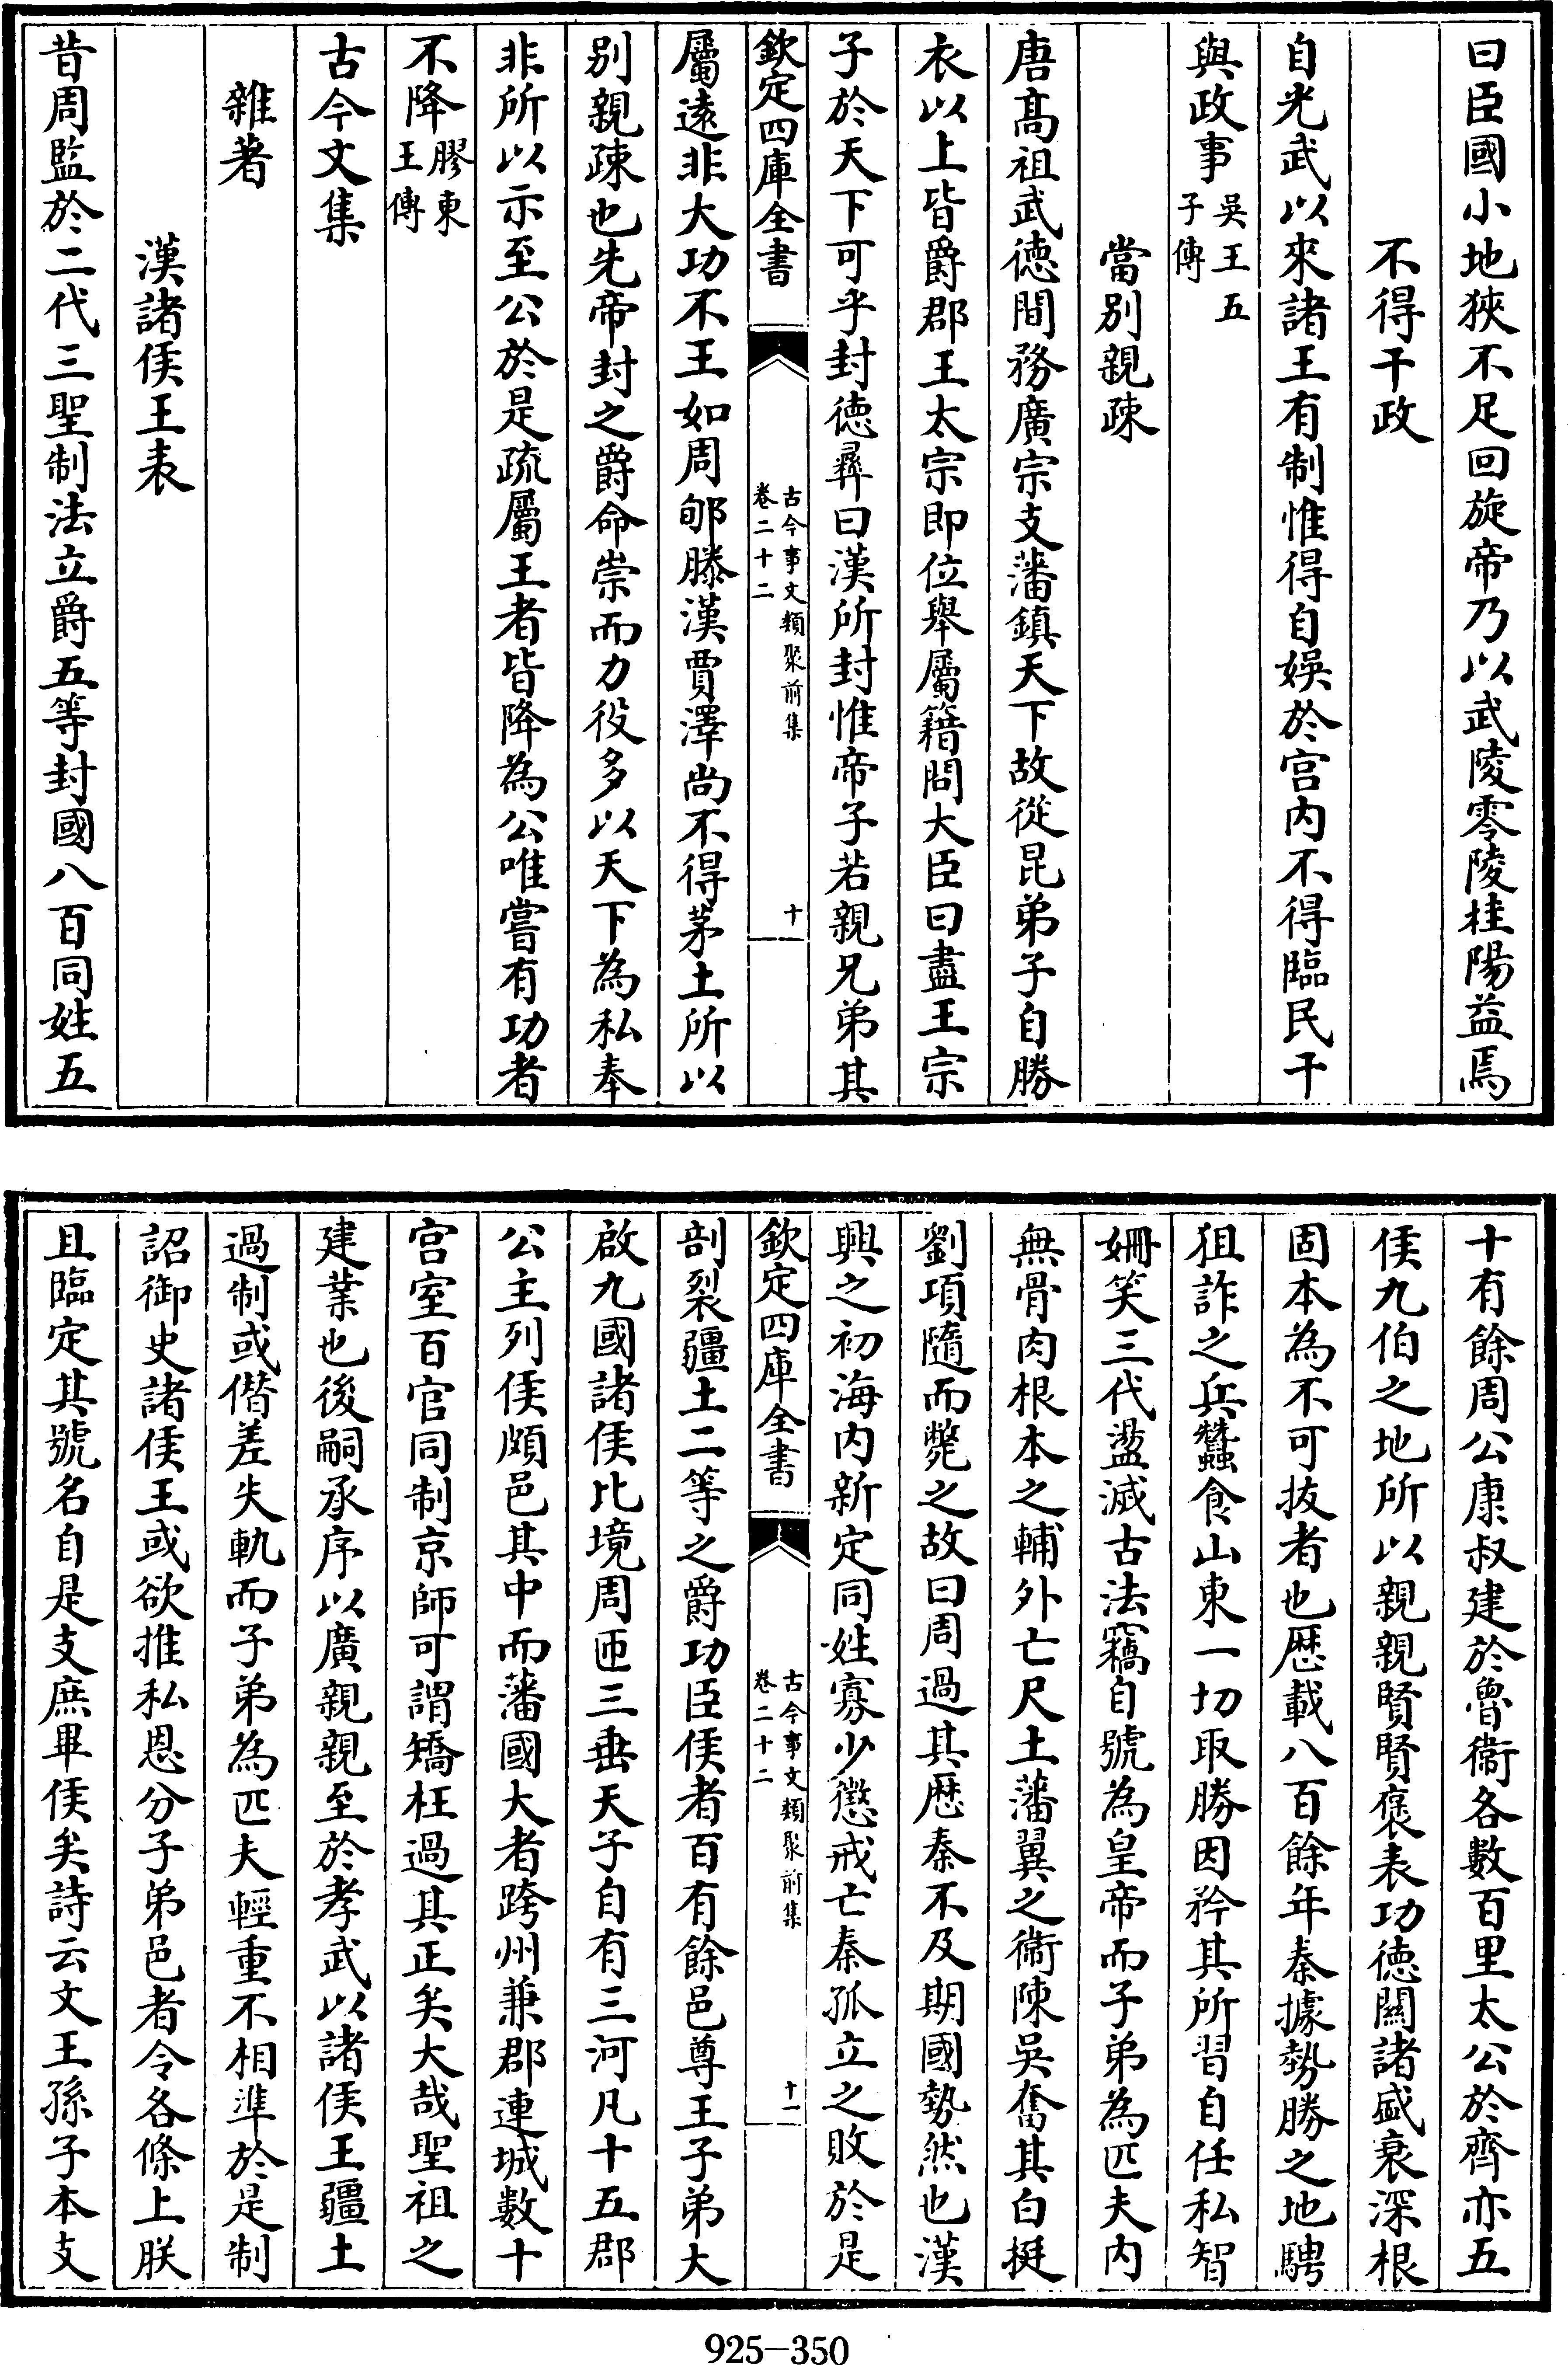 曰臣國小地狹不足回旋帝乃以武陵零陵桂陽益焉
不得干政
自光武以來諸王有制惟得自娛於宫内不得臨民干
與政事吳王五子傳
當别親疎
唐髙祖武徳間務廣宗支藩鎮天下故從昆弟子自勝
衣以上皆爵郡王太宗即位舉屬籍問大臣曰盡王宗
子於天下可乎封徳彛曰漢所封惟帝子若親兄弟其
欽定四庫全書
古今事文類聚前集
卷二十二
十
屬逺非大功不王如周郇滕漢賈澤尚不得茅土所以
别親疎也先帝封之爵命崇而力役多以天下為私奉
非所以示至公於是疏屬王者皆降為公唯嘗有功者
不降膠東王傳
古今文集
雜著
漢諸侯王表
昔周監於二代三聖制法立爵五等封國八百同姓五
十有餘周公康叔建於魯衞各數百里太公於齊亦五
侯九伯之地所以親親賢賢褒表功徳關諸盛衰深根
固本為不可拔者也歴載八百餘年秦據勢勝之地騁
狙詐之兵蠶食山東一切取勝因矜其所習自任私智
姍笑三代盪滅古法竊自號為皇帝而子弟為匹夫内
無骨肉根本之輔外亡尺土藩翼之衞陳吳奮其白挺
劉項隨而斃之故曰周過其歴秦不及期國勢然也漢
興之初海内新定同姓寡少懲戒亡秦孤立之敗於是
欽定四庫全書
古今事文類聚前集
卷二十二
十一
剖裂疆土二等之爵功臣侯者百有餘邑尊王子弟大
啟九國諸侯比境周匝三垂天子自有三河凡十五郡
公主列侯頗邑其中而藩國大者跨州兼郡連城數十
宫室百官同制京師可謂矯枉過其正矣大哉聖祖之
建業也後嗣承序以廣親親至於孝武以諸侯王疆土
過制或僭差失軌而子弟為匹夫輕重不相準於是制
詔御史諸侯王或欲推私恩分子弟邑者令各條上朕
且臨定其號名自是支庶畢侯矣詩云文王孫子本支
925-350